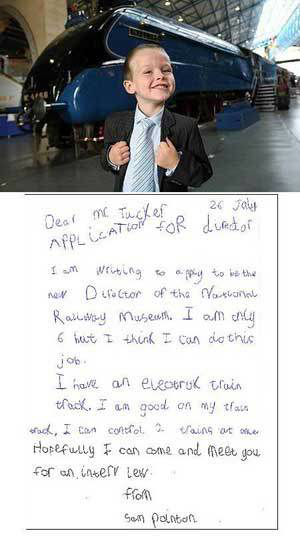 Dear Mr. Tucker 26 July
APPLICATION FOR director
I am writing to apply to be the
new Director of the National
Railway Museum. I am only
6 but I think I can do this
job.
I have an electruk train
track. I am good on my train
track. I can control 2 trains at once
Hopefully I can come and meet you
for an interview.
from
Sam Pointon